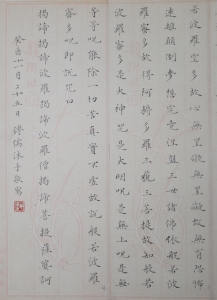 若波羅蜜多故心無罣礙無罣礙故無有恐怖
遠離顛倒夢想究竟涅槃三世諸佛依般若波
羅蜜多故得阿耨多羅三藐三菩提故知般若
波羅蜜多是大神咒是大明咒是無上咒是無
等等咒能除一切苦真實不虛故說般若波羅
蜜多咒即說咒曰
揭諦揭諦波羅揭諦波羅僧揭諦菩提薩婆訶
月二十五日沐手敬寫